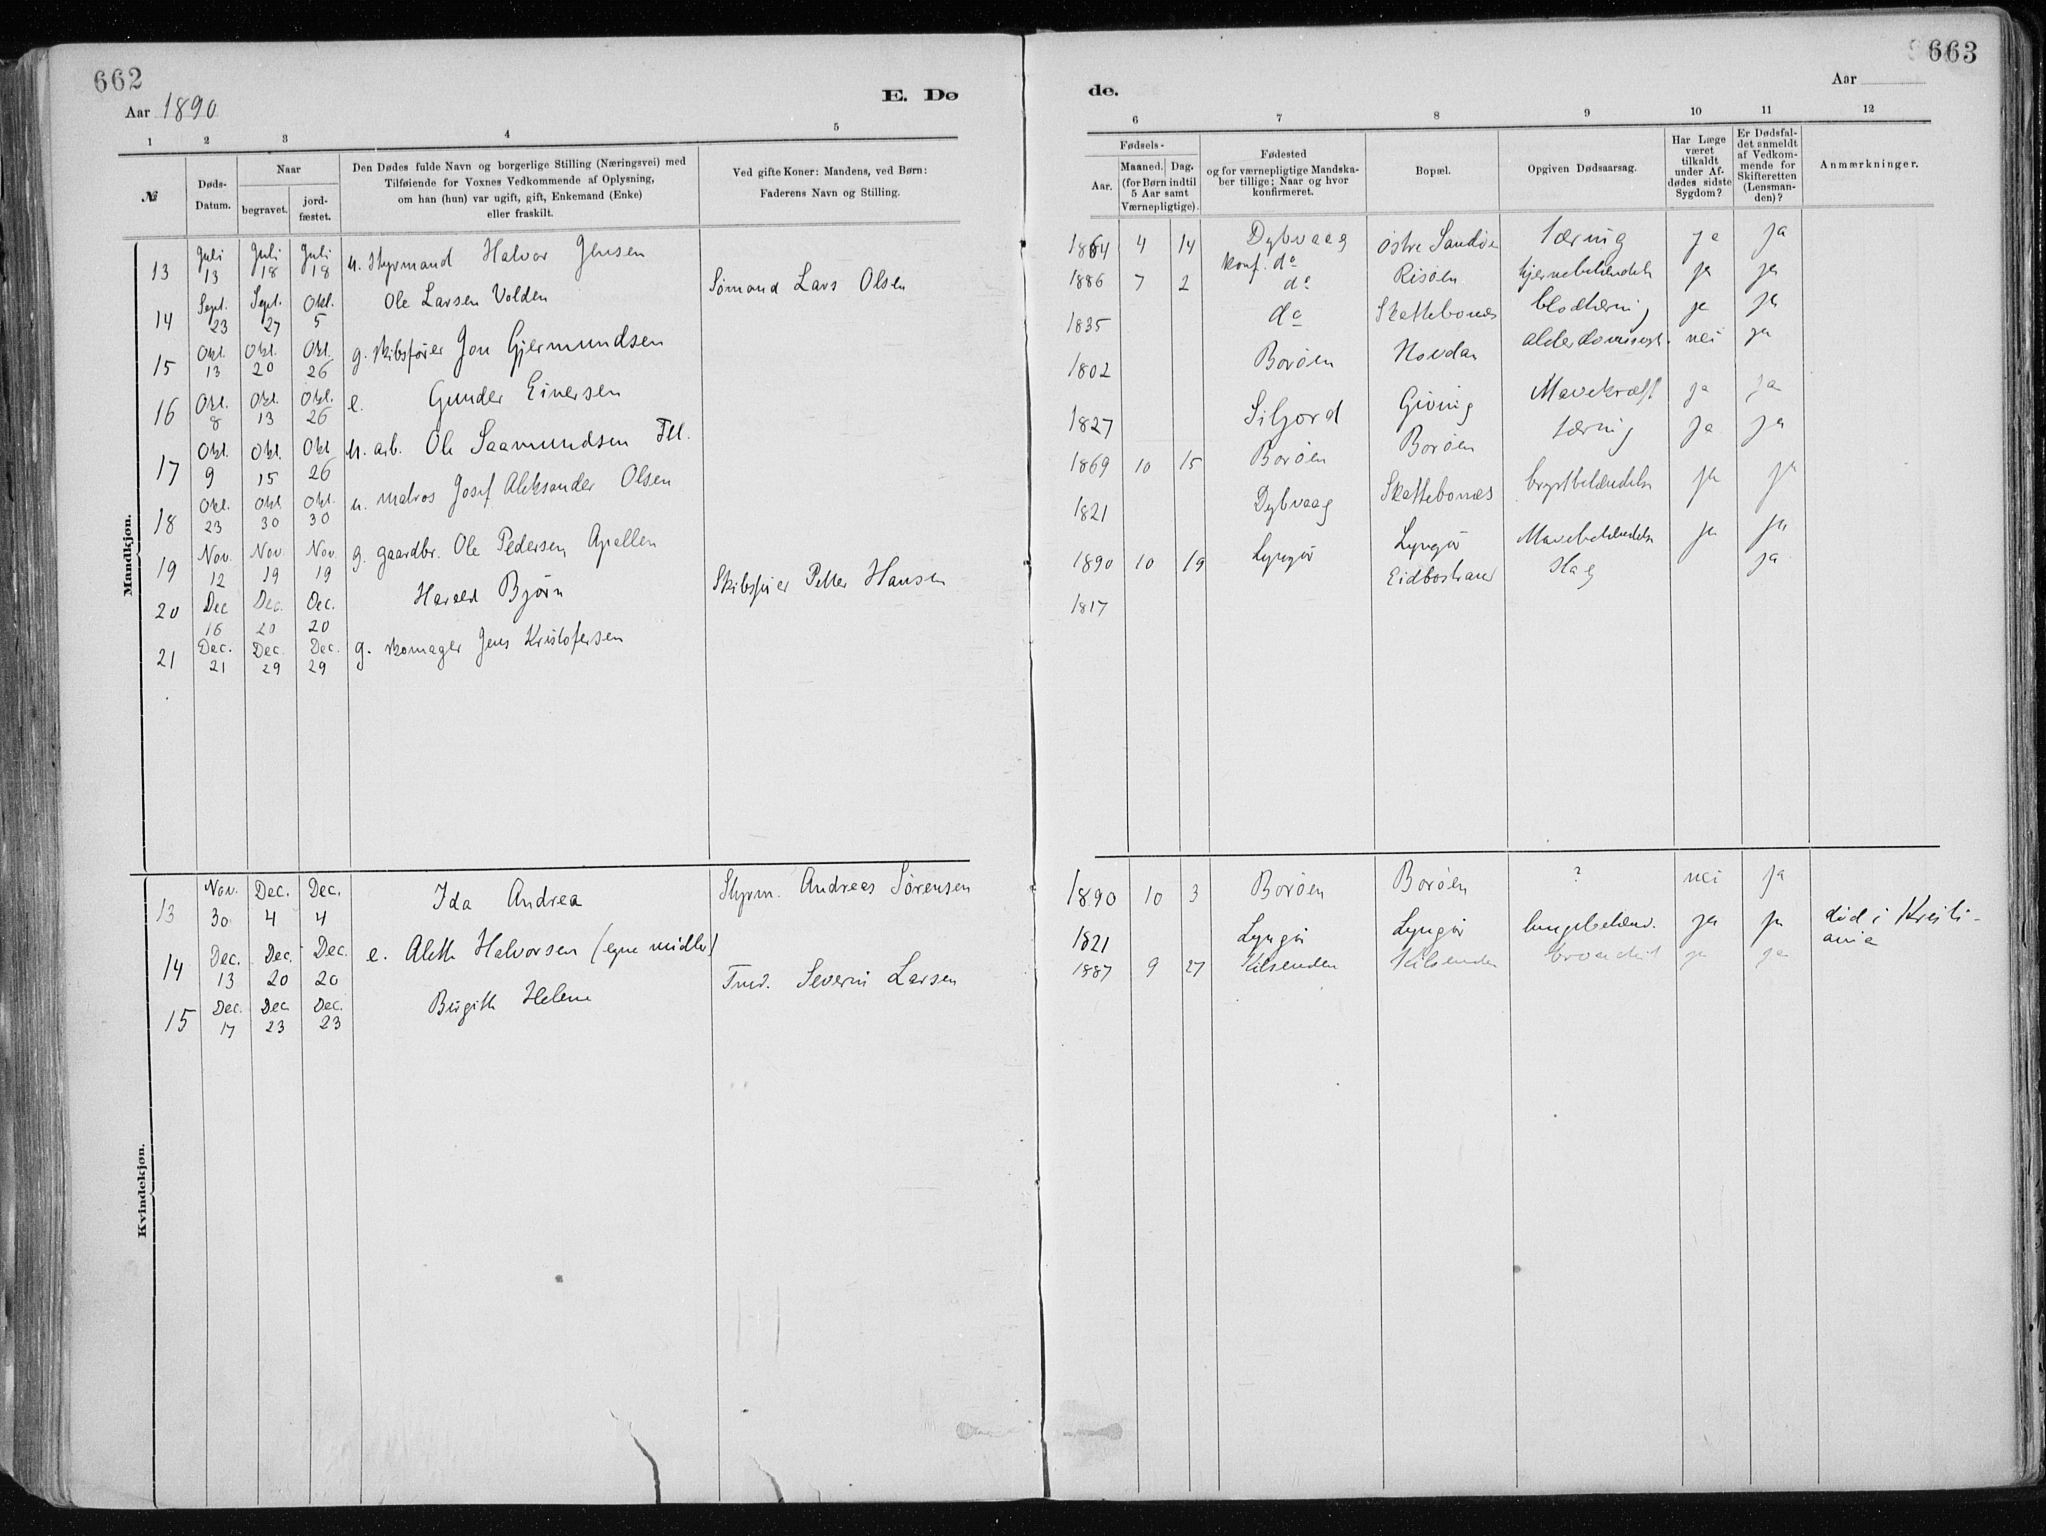 662
Aar 1890
E. Dø
1 2 3 4 5
№
Døds-Datum.
Naar
begravet.
jordfæstet.
Den Dødes fulde Navn og borgerlige Stilling (Næringsvei) med
Tilføiende for Voxnes Vedkommende af Oplysning,
om han (hun) var ugift, gift, Enkemand (Enke)
eller fraskilt.
Ved gifte Koner: Mandens, ved Børn:
Faderens Navn og Stilling.
Mandkjøn.
13 Juli 13 Juli 18 Juli 18 u. styrmand Halvor Jensen
14 Sept. 23 Sept. 27 Okt. 5 Ole Larsen Volden Sømand Lars Olsen
15 Okt. 13 Okt. 20 Okt. 26 g. skibsfører Jon Gjermundsen
16 Okt. 8 Okt. 13 Okt. 26 e. Gunder Einersen
17 Okt. 9 Okt. 15 Okt 26 u. arb. Ole Saamundsen
18 Okt. 23 Okt 30 Okt 30 u. matros Josef Aleksander Olsen
19 Nov. 12 Nov 19 Nov. 19 g. gaardbr. Ole Pedersen Apallen
20 Dec 16 Dec. 20 Dec. 20 Harald Bjørn Skibsfører Petter Hansen
21 Dec. 21 Dec. 29 Dec. 29 g. skomager Jens Kristofersen
Kvindekjøn.
13 Nov. 30 Dec. 4 Dec. 4 Ida Andrea Styrm. Andreas Sørensen
14 Dec. 13 Dec. 20 Dec. 20 e. Aleth Halvorsen (egne midler)
15 Dec. 17 Dec 23 Dec. 23 Birgith Helene Tmd. Severin Larsen
663
de.
Aar
6 7 8 9 10 11 12
Fødsels-
Aar.
Maaned. Dag.
(for Børn indtil
5 Aar samt
Værnepligtige).
Fødested
og for værnepligtige Mandska-
ber tillige; Naar og hvor
konfirmeret.
Bopæl.
Opgiven Dødsaarsag.
Har Læge
været
tilkaldt
under Af-
dødes sidste
Sygdom?
Er Dødsfal-
det anmeldt
af Vedkom-
mende for
Skifteretten
(Lensman-
den)?
Anmærkninger.
1864 4 14 Dybvaag konf. do Østre Sandøen tæring ja ja
1886 7 2 do Risøen hjernebetændelse ja ja
1835 do Skattebonæs blodtæring ja ja
1802 Borøen Hovdan alderdomssvagh. nei ja
1827 Siljord Giving Mavekræft ja ja
1869 10 15 Borøen Borøen tæring ja ja
1821 Dybvaag Skattebonæs brystbetændelse ja ja
1890 10 19 Lyngør Lyngør Mavebetændelse ja ja
1817 Eidbostrand Slag ja
1890 10 3 Borøen Borøen ? nei ja
1821 Lyngør Lyngør lungebetænd. ja ja død i Kristi-
ania
1887 9 27 Kilsenden Kilsenden bronchit ja ja